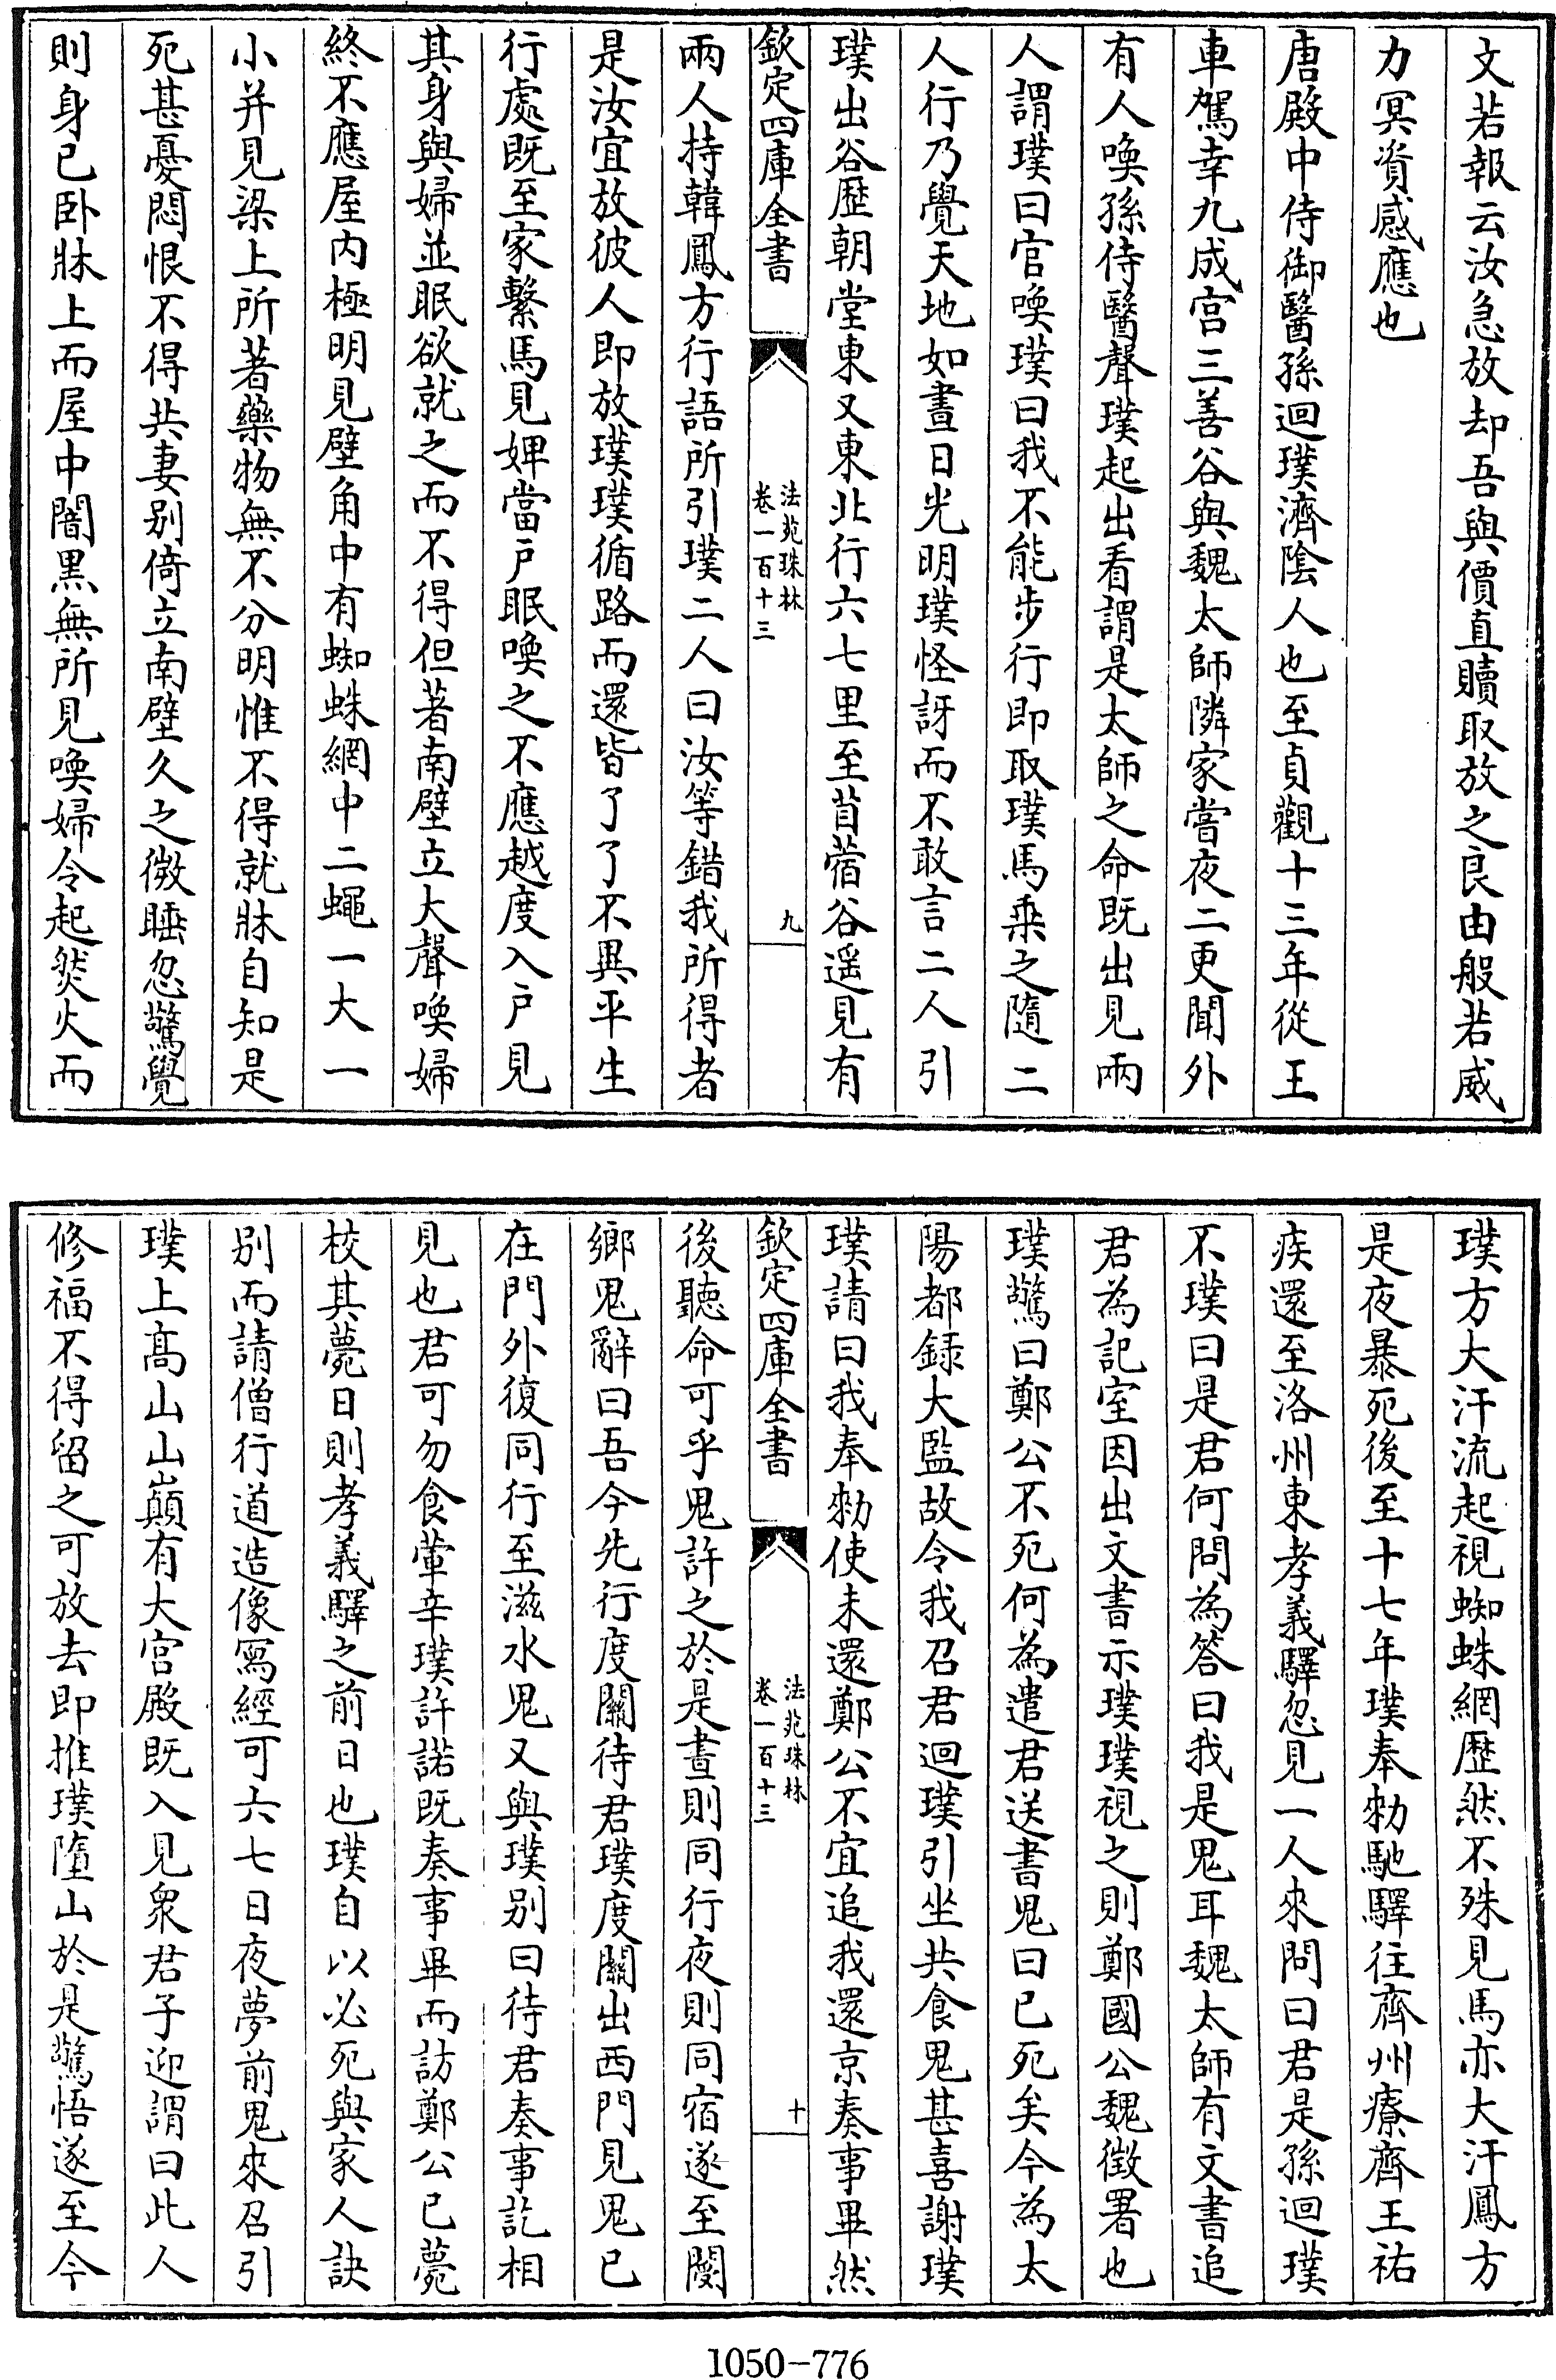 文若報云汝急放却吾與價直贖取放之良由般若威
力冥資感應也
唐殿中侍御醫孫迴璞濟陰人也至貞觀十三年從王
車駕幸九成宫三善谷與魏太師隣家嘗夜二更聞外
有人喚孫侍醫聲璞起出看謂是太師之命既出見兩
人謂璞曰官喚璞曰我不能步行即取璞馬乘之隨二
人行乃覺天地如晝日光明璞怪訝而不敢言二人引
璞出谷歴朝堂東又東北行六七里至苜蓿谷遥見有
欽定四庫全書
法苑珠林
卷一百十三
九
兩人持韓鳳方行語所引璞二人曰汝等錯我所得者
是汝宜放彼人即放璞璞循路而還皆了了不異平生
行處既至家繫馬見婢當户眠喚之不應越度入户見
其身與婦並眠欲就之而不得但著南壁立大聲喚婦
終不應屋内極明見壁角中有蜘蛛網中二蠅一大一
小并見梁上所著藥物無不分明惟不得就牀自知是
死甚憂悶恨不得共妻别倚立南壁久之微睡忽驚覺
則身已卧牀上而屋中闇黒無所見喚婦令起然火而
璞方大汗流起視蜘蛛網歴然不殊見馬亦大汗鳳方
是夜暴死後至十七年璞奉勅馳驛往齊州療齊王祐
疾還至洛州東孝義驛忽見一人來問曰君是孫迴璞
不璞曰是君何問為答曰我是鬼耳魏太師有文書追
君為記室因出文書示璞璞視之則鄭國公魏徴署也
璞驚曰鄭公不死何為遣君送書鬼曰已死矣今為太
陽都録大監故令我召君迴璞引坐共食鬼甚喜謝璞
璞請曰我奉勅使未還鄭公不宜追我還京奏事畢然
欽定四庫全書
法苑珠林
卷一百十三
十
後聽命可乎鬼許之於是晝則同行夜則同宿遂至閿
鄉鬼辭曰吾今先行度關待君璞度關出西門見鬼已
在門外復同行至滋水鬼又與璞别曰待君奏事訖相
見也君可勿食葷辛璞許諾既奏事畢而訪鄭公已薨
校其薨日則孝義驛之前日也璞自以必死與家人訣
别而請僧行道造像寫經可六七日夜夢前鬼來召引
璞上髙山山巔有大宫殿既入見衆君子迎謂曰此人
修福不得留之可放去即推璞墮山於是驚悟遂至今
1050-776